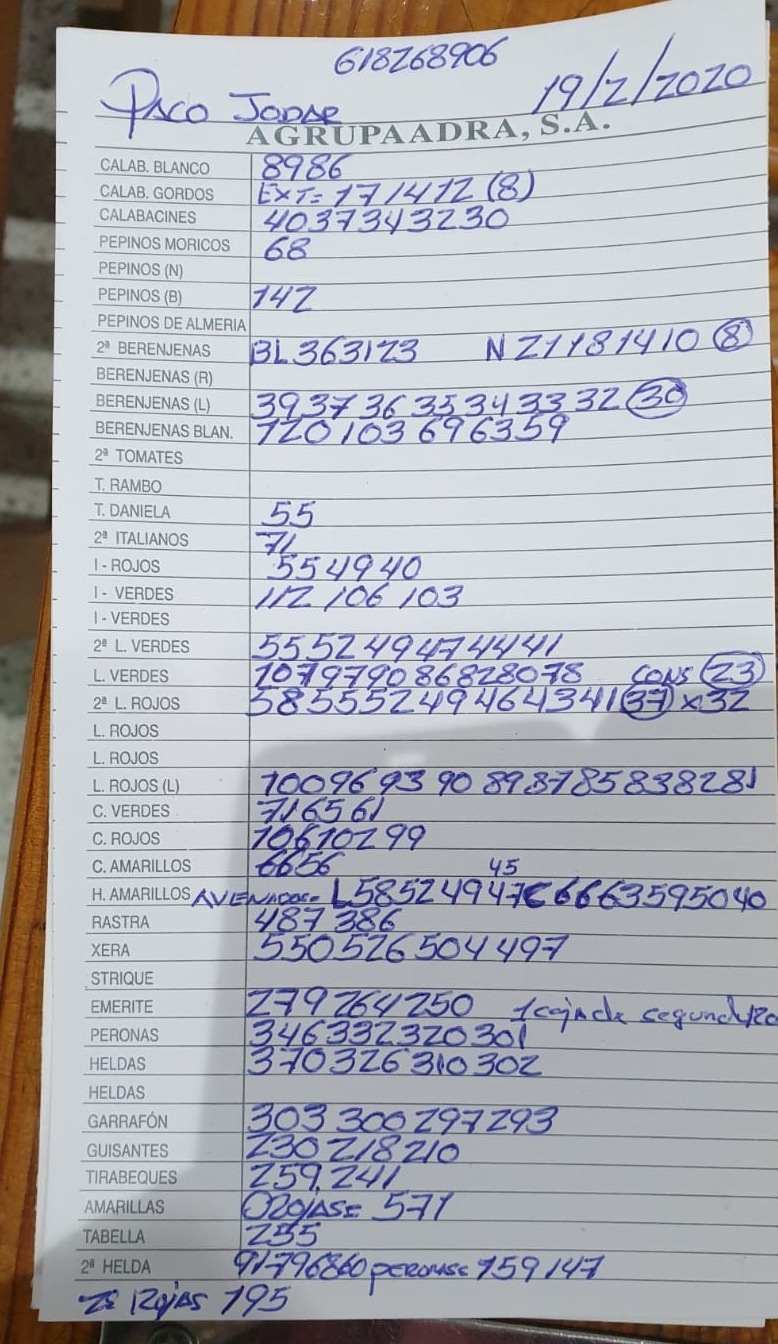 618268906
PACO JODAR 19/2/2020
AGRUPAADRA, S.A.
CALAB. BLANCO 8986
CALAB. GORDOS EXT= 171412 (8)
CALABACINES 4037343230
PEPINOS MORICOS 68
PEPINOS (N)
PEPINOS (B) 142
PEPINOS DE ALMERIA
2ª BERENJENAS BL363123 N21181410 (8)
BERENJENAS (R)
BERENJENAS (L) 39373635343332 (30)
BERENJENAS BLAN. 120103696359
2ª TOMATES
T. RAMBO
T. DANIELA 55
2ª ITALIANOS 71
I - ROJOS 554940
I - VERDES 112 106 103
I - VERDES
2ª L. VERDES 555249474441
L. VERDES 107979086828078 CONS (23)
2ª L. ROJOS 58555249464341 (37) x32
L. ROJOS
L. ROJOS
L. ROJOS (L) 1009693 90 898785838281
C. VERDES 716561
C. ROJOS 10610299
C. AMARILLOS 6656 45
H. AMARILLOS L58524947C6663595040
RASTRA 487 386
XERA 550526504497
STRIQUE
EMERITE 279264250 1 caja de segunda
PERONAS 346332320301
HELDAS 370326310302
HELDAS
GARRAFÓN 303 300 297293
GUISANTES 230218210
TIRABEQUES 259,241
AMARILLAS ROJAS= 571
TABELLA 255
2ª HELDA 91796860 PERONAS 159147
2ª ROJAS 195